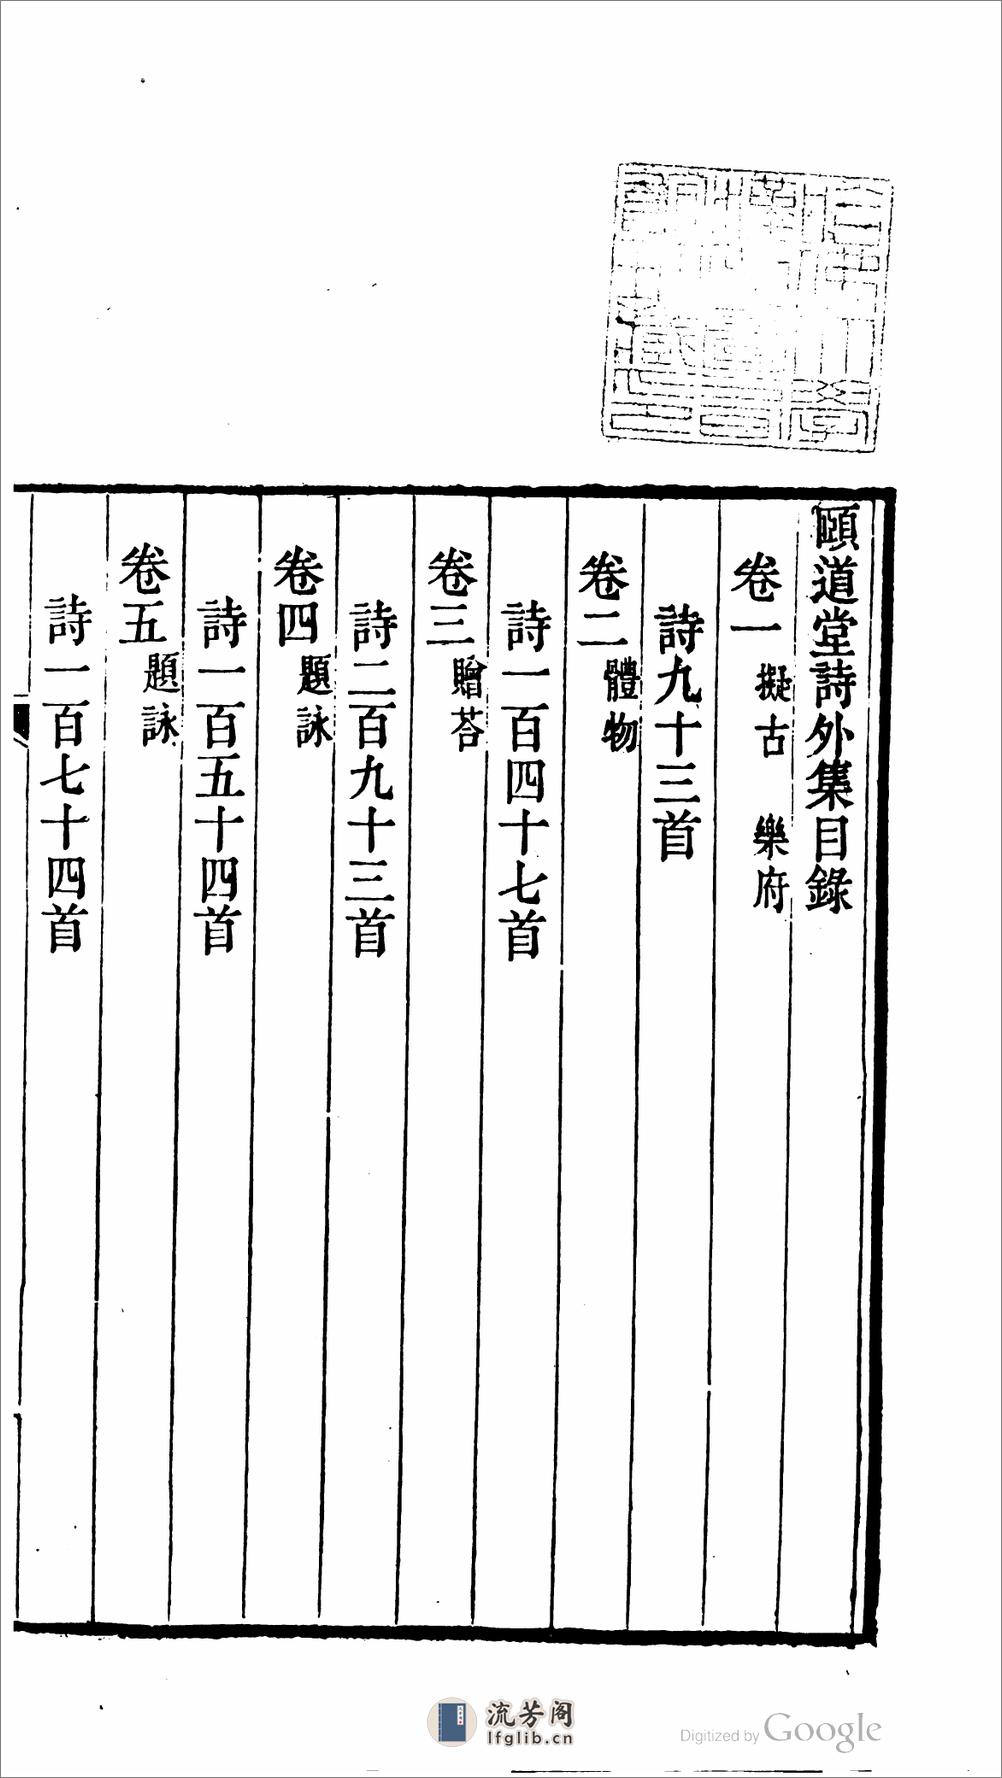 頤道堂詩外集目錄
卷一 擬古 樂府
詩九十三首
卷二 體物
詩一百四十七首
卷三 贈荅
詩二百九十三首
卷四 題詠
詩一百五十四首
卷五 題詠
詩一百七十四首
流芳阁
lfglib.cn
Digitized by Google